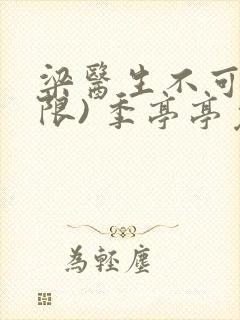 梁醫生不可
限）季亭亭
為輕塵